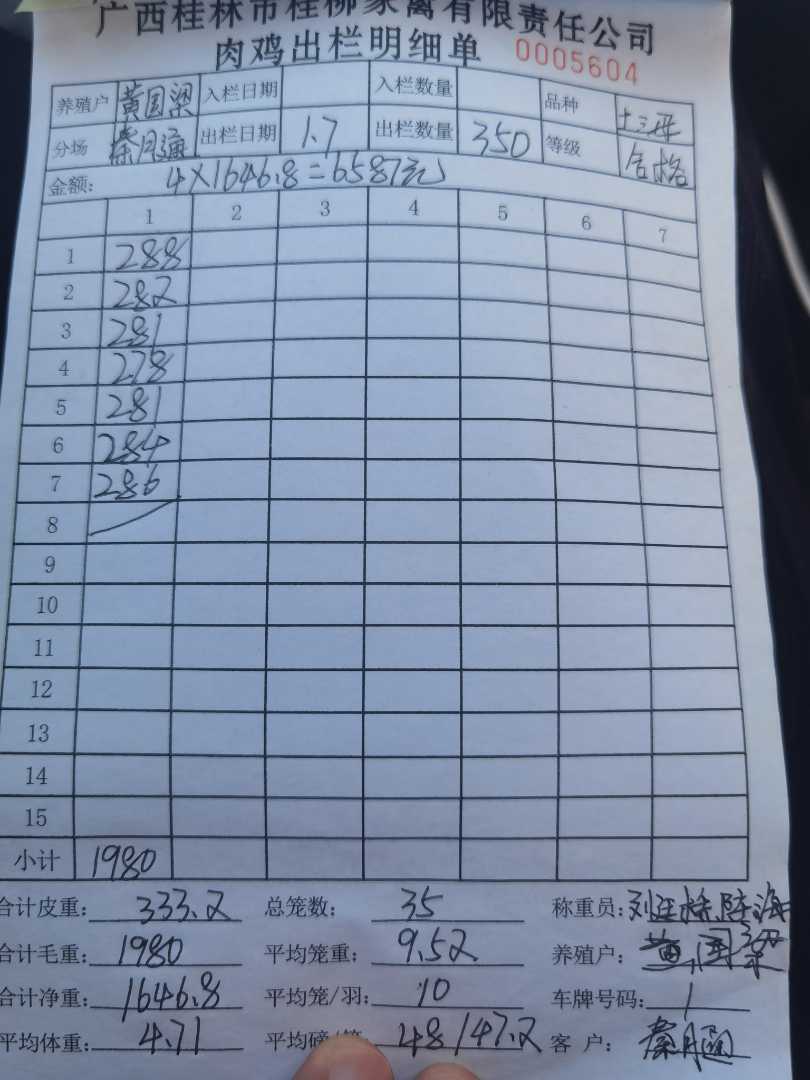 广西桂林市桂柳家禽有限责任公司
肉鸡出栏明细单 0005604
养殖户 黄国梁 入栏日期 入栏数量 品种 土三
分场 秦月通 出栏日期 1.7 出栏数量 350 等级 合格
金额: 4×1646.8=6587元
1 2 3 4 5 6 7
1 288
2 282
3 281
4 278
5 281
6 284
7 286
8
9
10
11
12
13
14
15
小计 1980
合计皮重: 333.2 总笼数: 35 称重员:
合计毛重: 1980 平均笼重: 9.52 养殖户: 黄国梁
合计净重: 1646.8 平均笼/羽: 10 车牌号码: 1
平均体重: 4.71 平均磅 48/47.2 客 户: 秦月通